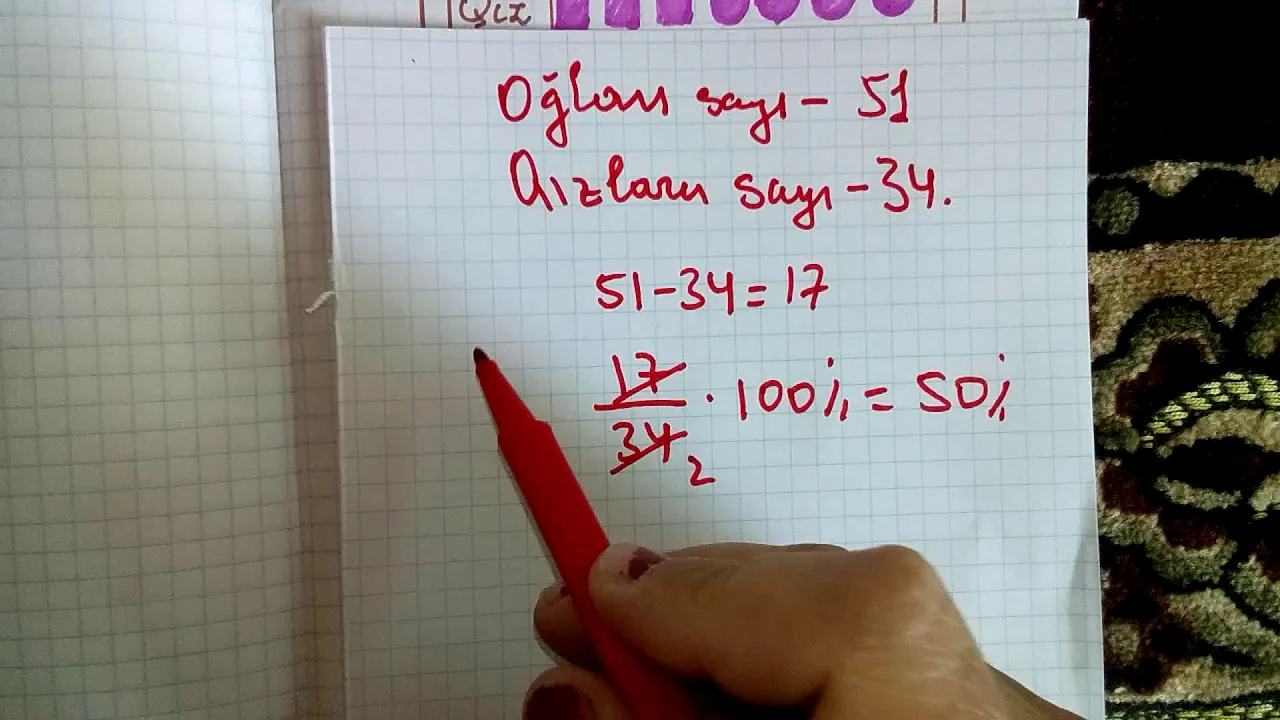 Qız
Oğlan sayı - 51
Qızların sayı - 34.
51 - 34 = 17
17/34 2 · 100% = 50%